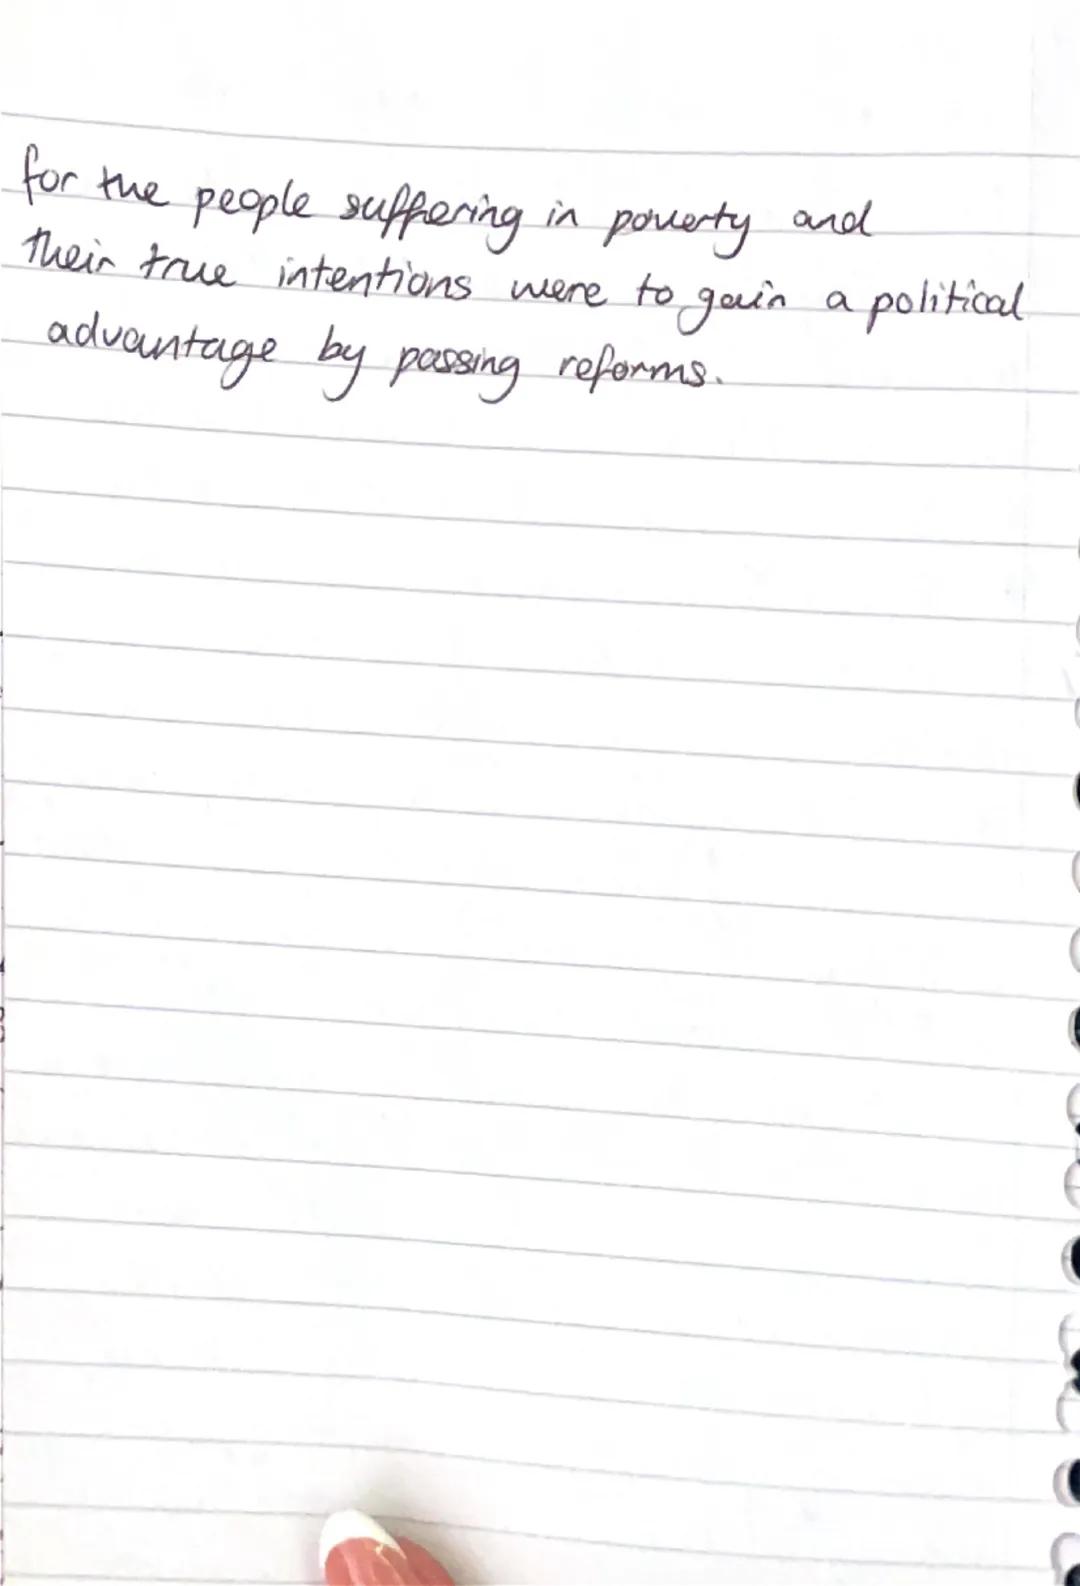 for the people suffering in poverty and
their true intentions were to gain a political
advantage by passing reforms.